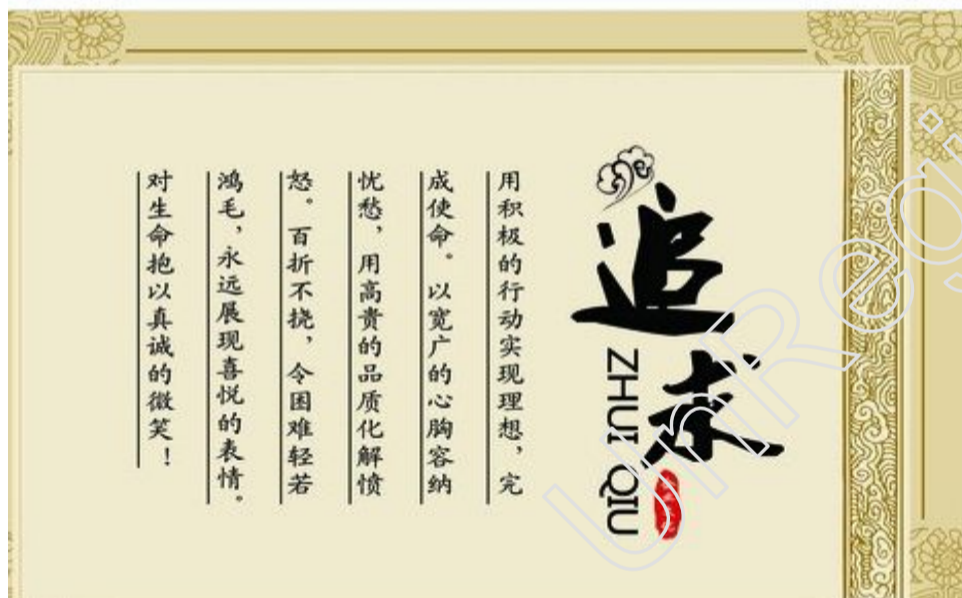 追求
ZHUI QIU
用积极的行动实现理想，完
成使命。以宽广的心胸容纳
忧愁，用高贵的品质化解愤
怒。百折不挠，令困难轻若
鸿毛，永远展现喜悦的表情。
对生命抱以真诚的微笑！